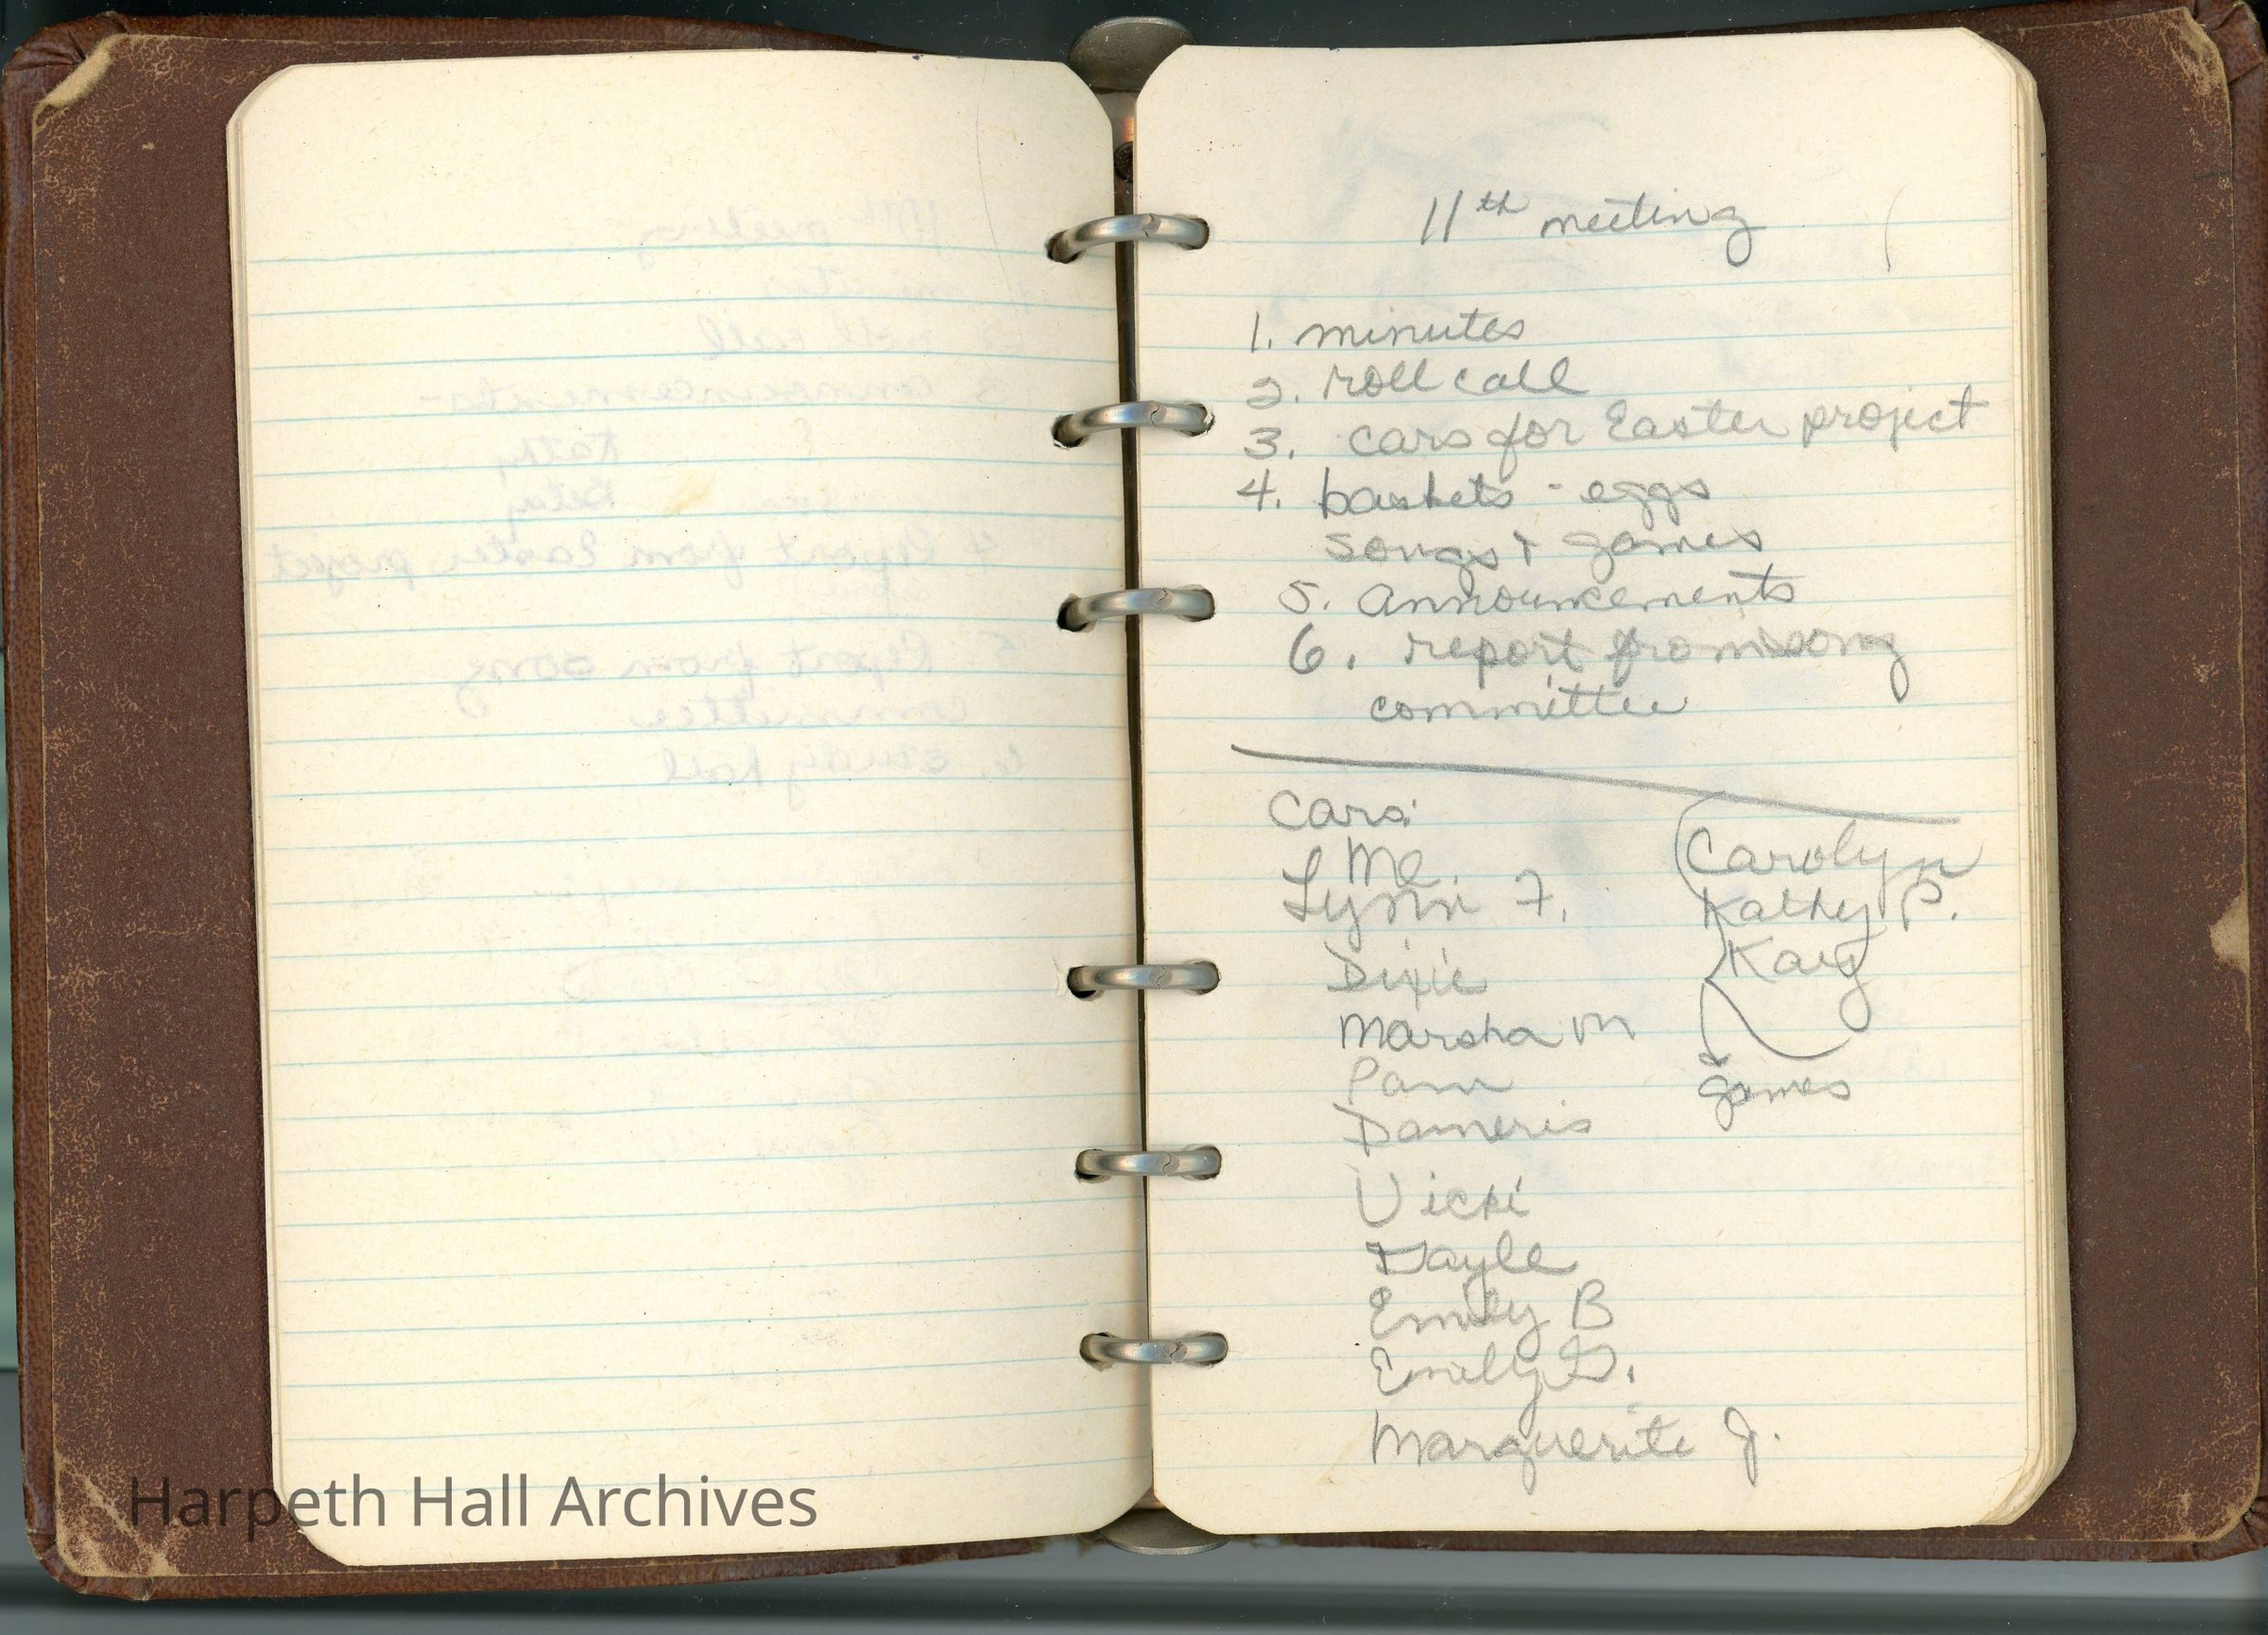 11th meeting
1. minutes
2. roll call
3. cars for Easter project
4. baskets - eggs
songs + games
5. announcements
6. report from song
committee
Cars:
Me
Lynn F.
Dixie
Marsha M
Pam
Dameris
Vicki
Gayle
Emily B
Emily G.
Marguerite J.
Carolyn
Kathy P.
Kay
games
Harpeth Hall Archives